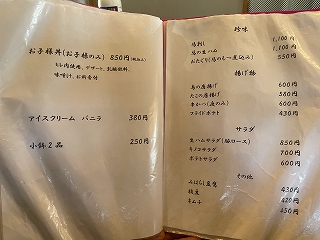 お子様丼(お子様のみ) 850円(税込)
ヒレ肉使用、デザート、乳酸飲料、
味噌汁、お新香付
アイスクリーム バニラ 380円
小鉢2品 250円
珍味
馬刺し 1,100円
馬の生ハム 1,100円
おたぐり(馬のもつ煮込み) 550円
揚げ物
鳥の唐揚げ 600円
たこの唐揚げ 580円
串かつ 600円
フライドポテト 430円
サラダ
生ハムサラダ(豚ロース) 850円
キノコサラダ 700円
ポテトサラダ 600円
その他
430円
枝豆 420円
キムチ 450円